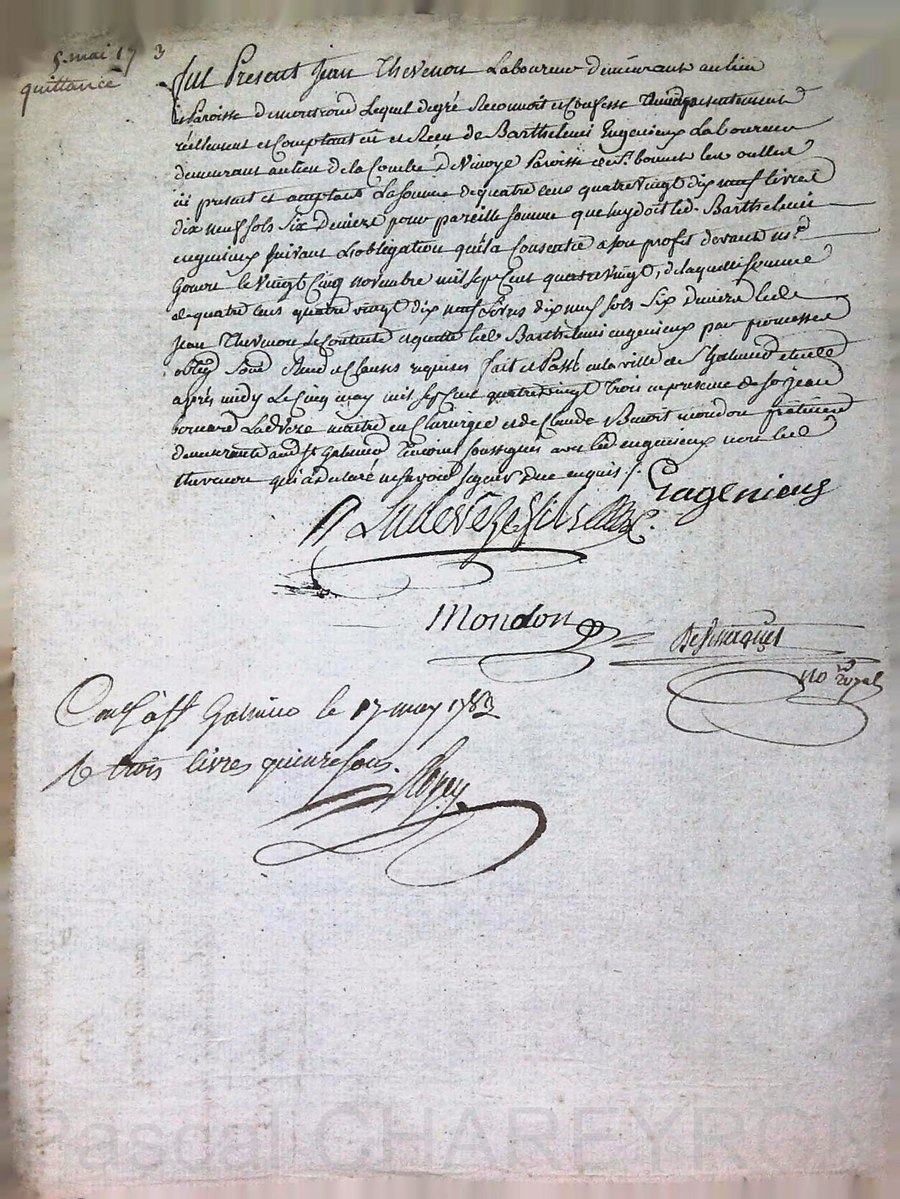 5. mai 17 3
quittance
fut Present Jean Thevenon Laboureur demeurant au lieu
et Paroisse de montrond Lequel de gré Reconnoit et Confesse presentement
réellement et Comptant eu et Recu de Barthelemi Eugenieux Laboureur
demeurant au lieu de la Combe Paroisse de St. bonnet les oulles
ici present et acceptant La somme de quatre cens quatre vingt dix neuf livres
dix neuf sols Six Deniers pour pareille somme que luy doit led. Barthelemi
eugenieux suivant L'obligation qu'il a Consentie a son profit devant
le vingt Cinq novembre mil sept Cent quatre vingt, de laquelle somme
de quatre cens quatre vingt dix neuf livres dix neuf sols Six deniers led.
Jean Thevenon Se Contente et quitte led. Barthelemi eugenieux par promesses
oblig. Soud. Rend. et Clauses requises fait et Passé en la ville de St Galmier etude
après midy Le Cinq may mil sept Cent quatre vingt trois en presence de Sr jean
bernard Ladveze maitre en Chirurgie et de Claude Benoit mondon praticien
demeurants aud. St Galmier temoins soussignés avec led. eugenieux non led.
thevenon qui a declaré ne savoir signer de ce enquis ./.
Eugenieux
Ladeveze fils
Mondon
no.re royal
Con.lé à St Galmier le 17 may 1783
R trois livres quinze sous.
Pascal CHAREYRON